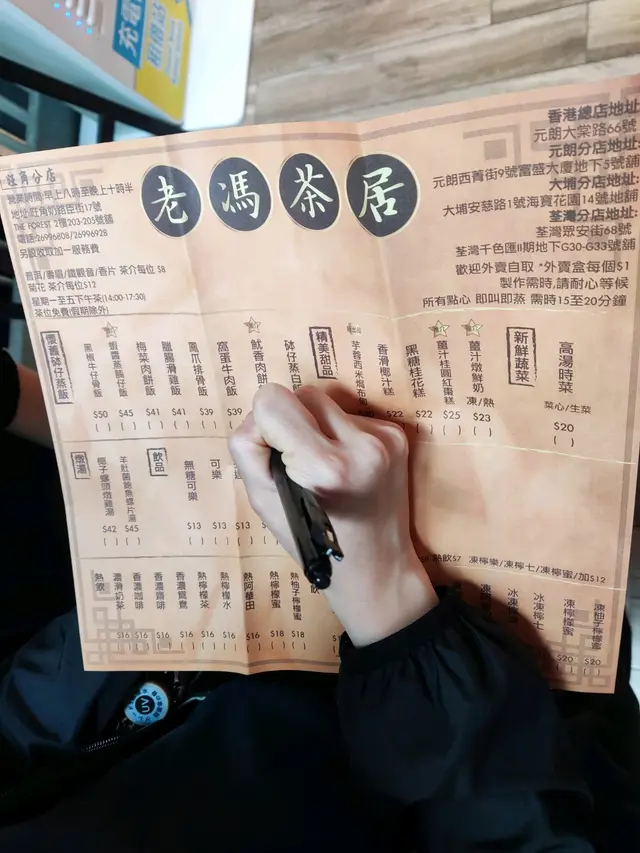 充電
老馮茶居
旺角分店
營業時間:早上八時至晚上十時半
地址:旺角奶路臣街17號
THE FOREST 2樓203-205號舖
電話:26996808/26996928
另設收取加一服務費
普洱/壽眉/鐵觀音/香片 茶介每位 $8
菊花 茶介每位$12
星期一至五下午茶(14:00-17:30)
茶位免費(假期除外)
香港總店地址:
元朗大棠路66號
元朗分店地址:
元朗西菁街9號富盛大廈地下5號舖
大埔分店地址:
大埔安慈路1號海寶花園14號地舖
荃灣分店地址:
荃灣眾安街68號
荃灣千色匯II期地下G30-G33號舖
歡迎外賣自取 *外賣盒每個$1
製作需時,請耐心等候
所有點心 即叫即蒸 需時15至20分鐘
新鮮蔬菜
高湯時菜
菜心/生菜
$20
( )
精美甜品
薑汁燉鮮奶
凍/熱
$23
( )
薑汁桂圓紅棗糕
$25
( )
黑糖桂花糕
$22
( )
香滑椰汁糕
$22
( )
芋蓉西米焗布甸
砵仔蒸飯
魷香肉餅
窩蛋牛肉飯
$39
( )
鳳爪排骨飯
$39
( )
臘腸滑雞飯
$41
( )
梅菜肉餅飯
$41
( )
$45
( )
黑椒牛仔骨飯
$50
( )
燉湯
椰子螺頭燉雞湯
$42
( )
羊肚菌鮑魚螺片湯
$45
( )
飲品
無糖可樂
$13
( )
可樂
$13
( )
$13
( )
熱飲
濃滑奶茶
$16
( )
香濃咖啡
$16
( )
香濃齋啡
$16
( )
香濃鴛鴦
$16
( )
熱檸檬茶
$16
( )
熱檸檬水
$16
( )
熱阿華田
$16
( )
熱檸檬蜜
$18
( )
熱柚子檸檬蜜
$18
( )
飲
熱飲$7 凍檸樂/凍檸七/凍檸蜜/加$12
冰凍檸七
凍檸檬蜜
$20
( )
凍柚子檸檬蜜
$20
( )